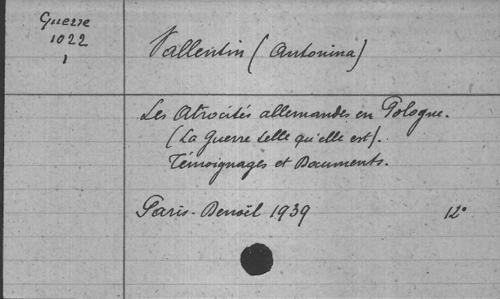 Guerre
1022
1
Vallentin (Antonina)
Les Atrocités allemandes en Pologne.
(La Guerre telle qu'elle est).
Témoignages et Documents.
Paris - Denoël 1939 12°